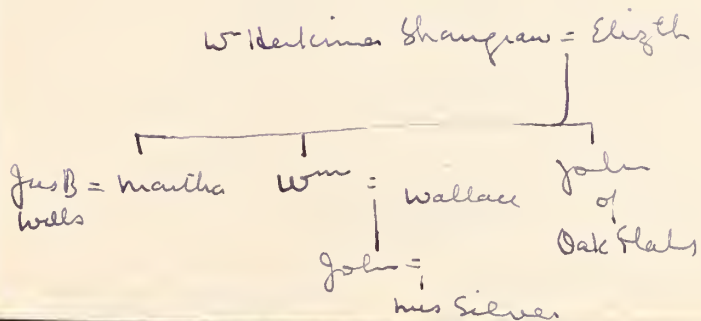 Wm Herkimer Shangraw = Elizth
Jas B = Martha Wm = Wallace John
Wells of
Oak Flats
John =
Mrs Silver